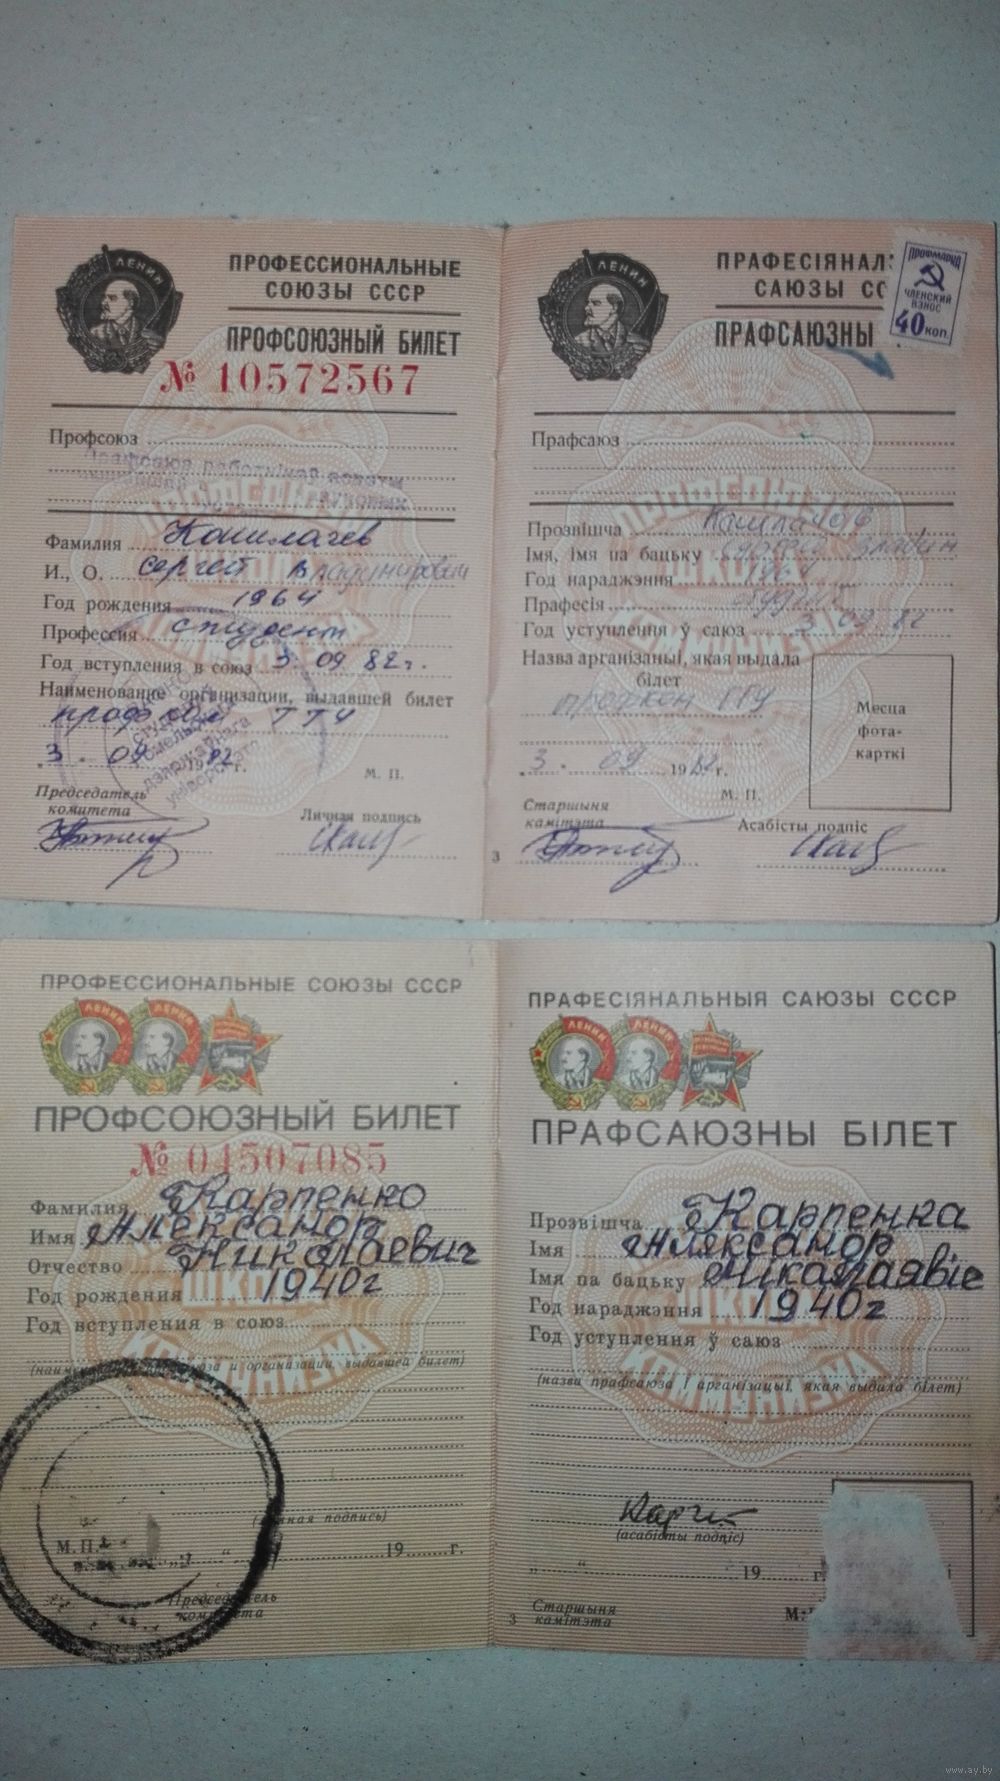 ЛЕНИН
ПРОФЕССИОНАЛЬНЫЕ
СОЮЗЫ СССР
ПРОФСОЮЗНЫЙ БИЛЕТ
№ 10572567
Профсоюз
Фамилия
И., О. Сергей Владимирович
Год рождения 1964
Профессия студент
Год вступления в союз 3. 09 82 г.
Наименование организации, выдавшей билет
профком ГГУ
3. 09 1982 г.
М. П.
Председатель
комитета
Личная подпись
ЛЕНИН
ПРАФЕСІЯНАЛ
САЮЗЫ СС
ПРАФСАЮЗНЫ
ПРОФМАРКА
ЧЛЕНСКИЙ
ВЗНОС
40 КОП.
Прафсаюз
Прозвішча
Імя, імя па бацьку Сяргей Уладзім
Год нараджэння 1964
Прафесія студэнт
Год уступлення ў саюз 3 09 82
Назва арганізацыі, якая выдала
білет
профком ГГУ
3. 09 1982 г.
М. П.
Месца
фота-
карткі
Старшыня
камітэта
Асабісты подпіс
3
ПРОФЕССИОНАЛЬНЫЕ СОЮЗЫ СССР
ЛЕНИН ЛЕНИН
ПРОФСОЮЗНЫЙ БИЛЕТ
№ 04507085
Фамилия Карпенко
Имя Александр
Отчество Николаевич
Год рождения 1940г
Год вступления в союз
(наименование профсоюза и организации, выдавшей билет)
(личная подпись)
М.П.
19 г.
Председатель
комитета
ПРАФЕСІЯНАЛЬНЫЯ САЮЗЫ СССР
ЛЕНИН ЛЕНИН
ПРАФСАЮЗНЫ БІЛЕТ
Прозвішча Карпенка
Імя Аляксандр
Імя па бацьку Мікалаявіч
Год нараджэння 1940г
Год уступлення ў саюз
ШКОЛА
КОММУНИЗМА
(назва прафсаюза і арганізацыі, якая выдала білет)
(асабісты подпіс)
19 г.
Старшыня
камітэта
3
www.ay.by